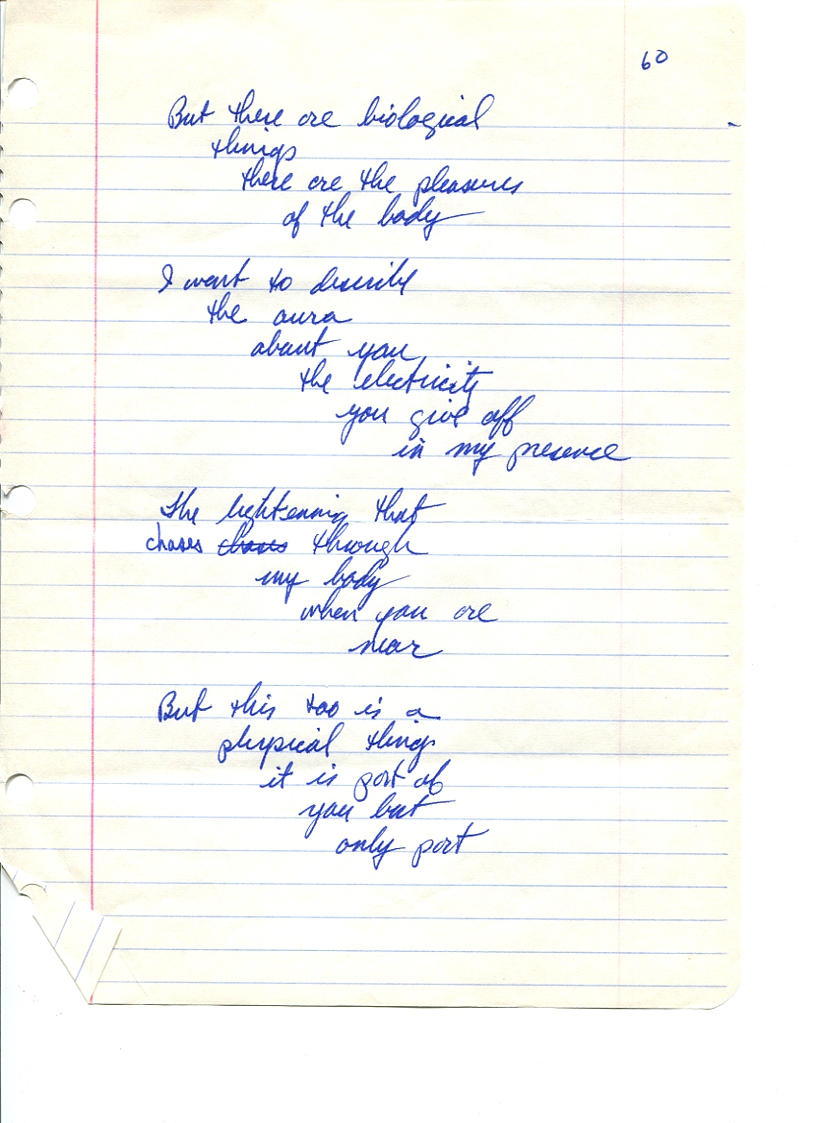 60
But there are biological
things
there are the pleasures
of the body
I want to describe
the aura
about you
the electricity
you give off
in my presence
The lightenning that
chases chases through
my body
when you are
near
But this too is a
physical thing
it is part of
you but
only part